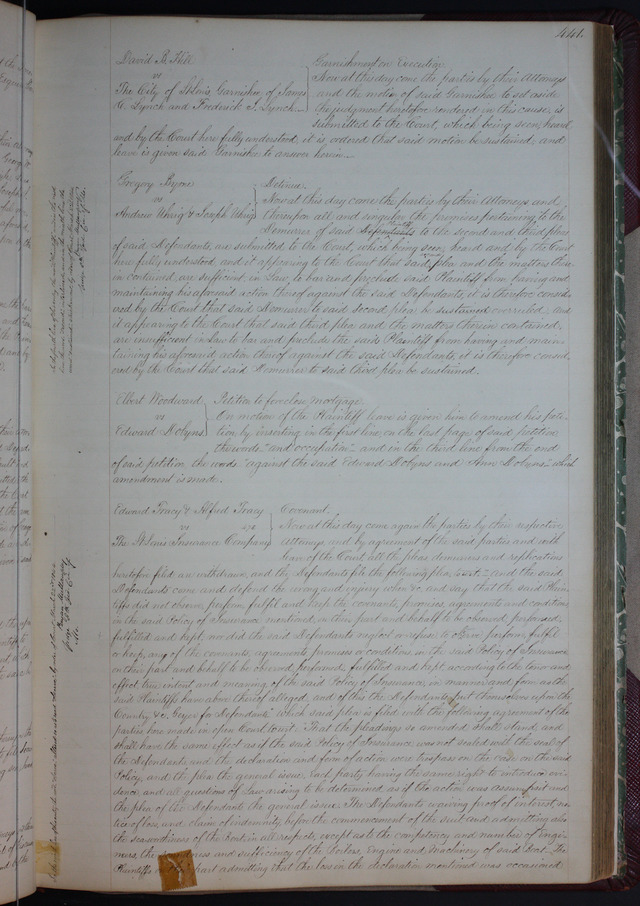 441.
David B. Hill
vs
The City of St Louis Garnishee of James
C. Lynch and Frederick J. Lynch
Garnishment on Execution
Now at this day come the parties by their Attorneys
and the motion of said Garnishee to set aside
the judgment heretofore rendered in this cause, is
submitted to the Court, which being seen, heard
and by the Court here fully understood, it is ordered that said motion be sustained, and
leave is given said Garnishee to answer herein.
Gregory Byrne
vs
Andrew Uhrig & Joseph Uhrig
Detinue.
Now at this day come the parties by their Attorneys, and
thereupon all and singular the premises pertaining to the
Demurrer of said to the second and third pleas
of said Defendants, are submitted to the Court, which being seen, heard and by the Court
here fully understood, and it appearing to the Court that said plea and the matters there
in contained, are sufficient in Law, to bar and preclude said Plaintiff from having and
maintaining his aforesaid action thereof against the said Defendants, it is therefore consid
ered by the Court that said Demurrer to said second plea be overruled, and
it appearing to the Court that said third plea and the matters therein contained,
are insufficient in Law to bar and preclude the said Plaintiff from having and main
taining his aforesaid action thereof against the said Defendants, it is therefore consid
ered by the Court that said Demurrer to said third plea be sustained.
Elbert Woodward
vs
Edward Dobyns
Petition to foreclose mortgage.
On motion of the Plaintiff leave is given him to amend his peti
tion by inserting in the first line, on the last page of said petition
the words "and occupation" and in the third line from the end
of said petition, the words "against the said Edward Dobyns and Ann Dobyns" which
amendment is made.
Edward Tracy & Alfred Tracy
vs
The St Louis Insurance Company
Covenant.
Now at this day come again the parties by their respective
Attorneys and by agreement of the said parties and with
leave of the Court all the pleas demurrers and replications
heretofore filed are withdrawn, and the Defendants file the following plea, to wit: "and the said
Defendants come and defend the wrong and injury when &c, and say that the said Plain
tiffs did not observe, perform, fulfil and keep the covenants, promises, agreements and conditions
in the said Policy of Insurance mentioned, on their part and behalf to be observed, performed,
fulfilled and kept, nor did the said Defendants neglect or refuse to observe, perform, fulfil
or keep, any of the covenants, agreements promises or conditions in the said Policy of Insurance
on their part and behalf to be observed, performed, fulfilled and kept, according to the tenor and
effect, true intent and meaning, of the said Policy of Insurance, in manner and form as the
said Plaintiffs have above thereof alleged, and of this the Defendants put themselves upon the
Country &c. Geyer for Defendants" which said plea is filed with the following agreement of the
parties here made in open Court to wit: That the pleadings so amended shall stand, and
shall have the same effect as if the said Policy of Insurance was not sealed with the seal of
the Defendants, and the declaration and form of action were trespass on the case on the said
Policy, and the plea the general issue. Each party having the same right to introduce evi
dence, and all questions of Law arising to be determined as if the action was assumpsit and
the plea of the Defendant the general issue. The Defendants waiving proof of interest, no
tice of loss, and claim of indemnity, before the commencement of the suit and admitting also
the seaworthiness of the Boat in all respects, except as to the competency and number of Engi
neers, the and sufficiency of the Boilers, Engine and Machinery of said Boat. The
Plaintiffs on their part admitting that the loss in the declaration mentioned was occasioned